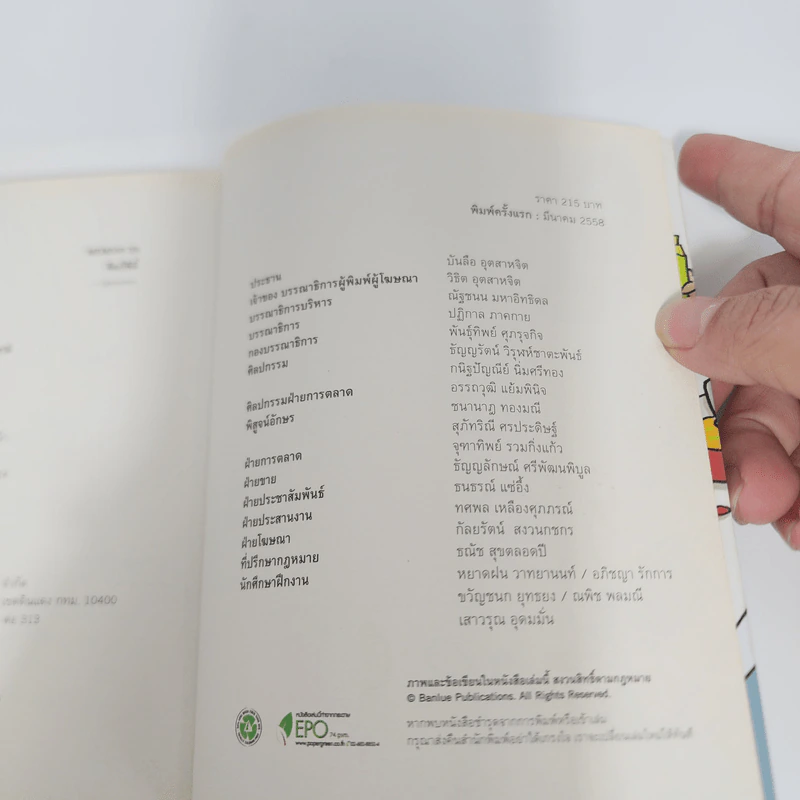 จำกัด
เขตดินแดง กทม. 10400
ต่อ 313
ราคา 215 บาท
พิมพ์ครั้งแรก : มีนาคม 2558
ประธาน
บันลือ อุตสาหจิต
เจ้าของ บรรณาธิการผู้พิมพ์ผู้โฆษณา
วิธิต อุตสาหจิต
บรรณาธิการบริหาร
ณัฐชนน มหาอิทธิดล
บรรณาธิการ
ปฏิกาล ภาคกาย
กองบรรณาธิการ
พันธุ์ทิพย์ ศุภรุจกิจ
ศิลปกรรม
ธัญญรัตน์ วิรุฬห์ชาตะพันธ์
กนิฐปัญณีย์ นิ่มศรีทอง
ศิลปกรรมฝ่ายการตลาด
อรรถวุฒิ แย้มพินิจ
พิสูจน์อักษร
ชนานาฏ ทองมณี
สุภัทริณี ศรประดิษฐ์
ฝ่ายการตลาด
จุฑาทิพย์ รวมกิ่งแก้ว
ฝ่ายขาย
ธัญญลักษณ์ ศรีพัฒนพิบูล
ฝ่ายประชาสัมพันธ์
ธนธรณ์ แซ่อึ้ง
ฝ่ายประสานงาน
ทศพล เหลืองศุภภรณ์
ฝ่ายโฆษณา
กัลยรัตน์ สงวนกชกร
ที่ปรึกษากฎหมาย
ธณัช สุขตลอดปี
นักศึกษาฝึกงาน
หยาดฝน วาทยานนท์ / อภิชญา รักการ
ขวัญชนก ยุทธยง / ณพิช พลมณี
เสาวรุณ อุดมมั่น
ภาพและข้อเขียนในหนังสือเล่มนี้ สงวนสิทธิ์ตามกฎหมาย
© Banlue Publications. All Rights Reserved.
หนังสือเล่มนี้ทำจากกระดาษ
EPO 74 gsm.
www.papergreen.co.th
หากพบหนังสือชำรุดจากการพิมพ์หรือเข้าเล่ม
กรุณาส่งคืนสำนักพิมพ์อย่าได้เกรงใจ เราจะเปลี่ยนเล่มใหม่ให้ทันที